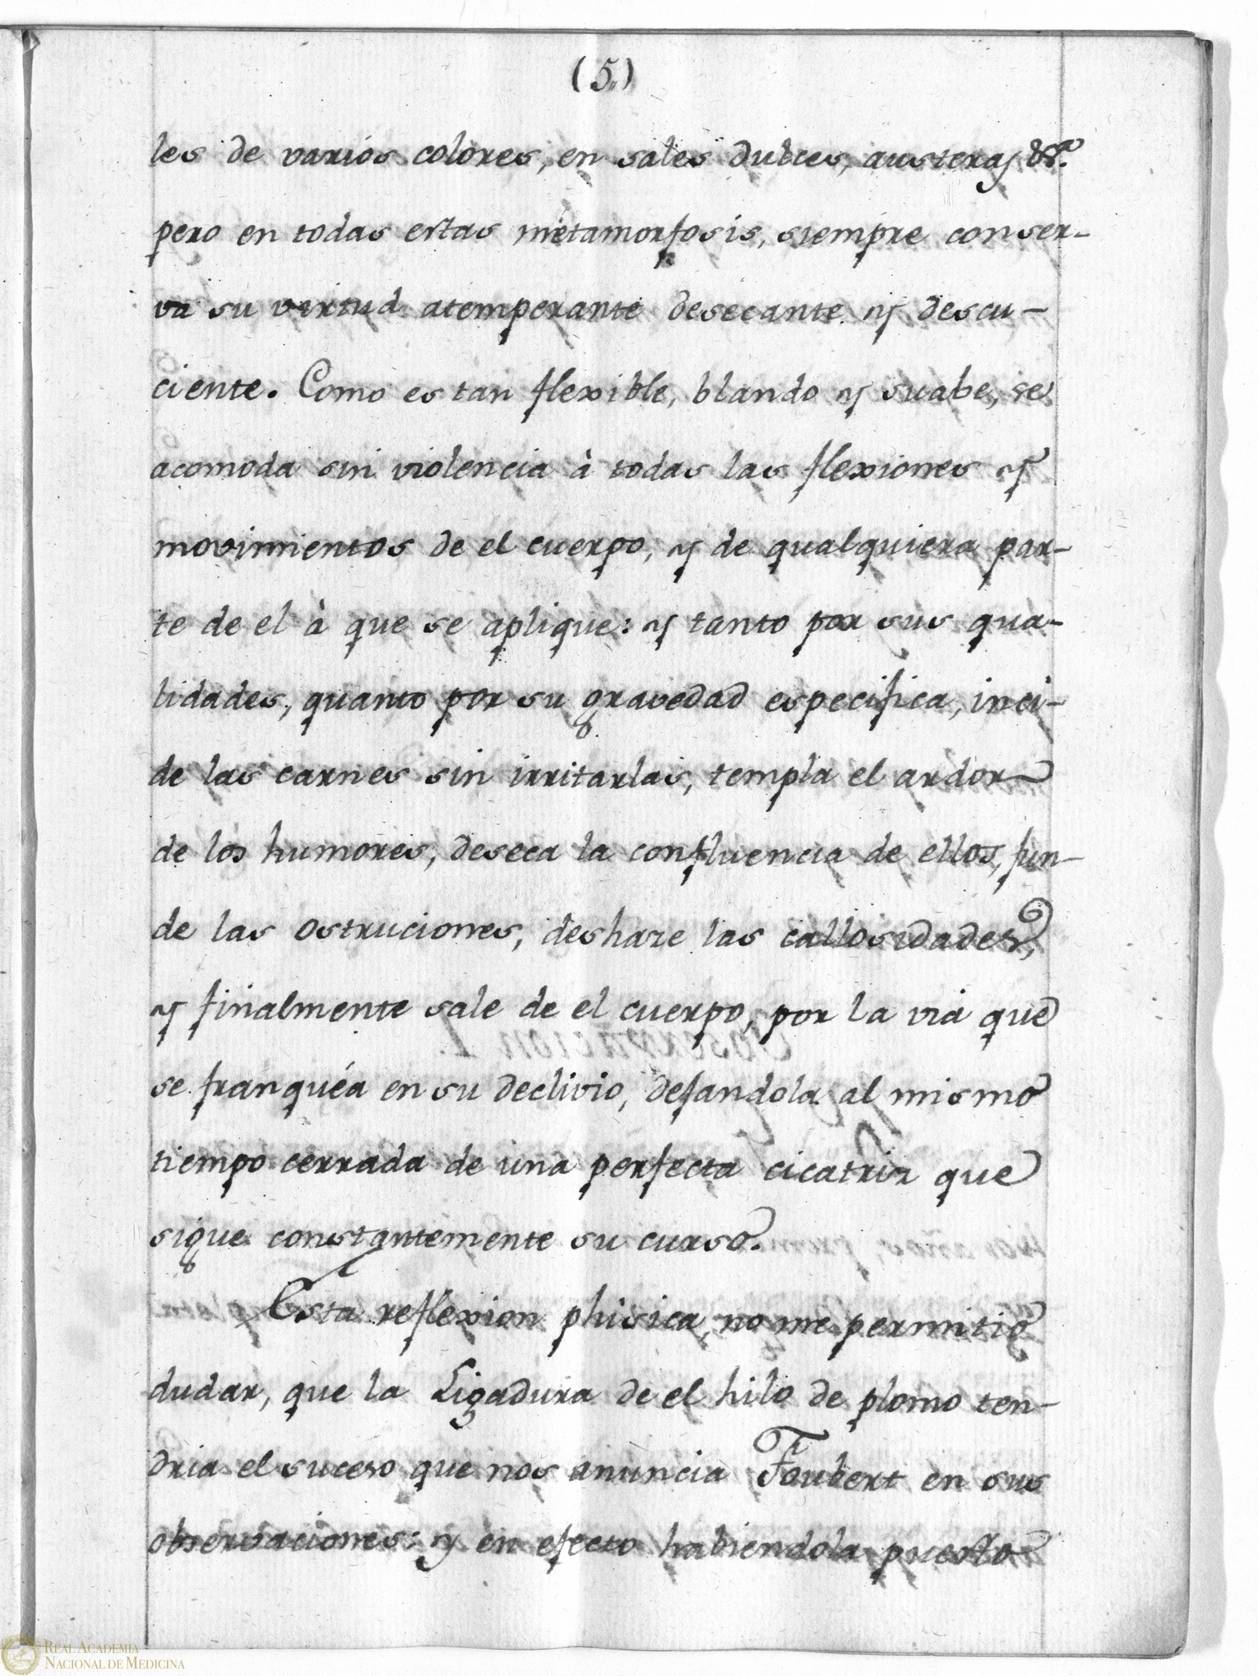 (5.)
les de varios colores, en sales dulces, austeras &ª.
pero en todas estas metamorfosis, siempre conser-
va su vertud atemperante desecante y descu-
ciente. Como es tan flexible, blando y suabe, se
acomoda sin violencia à todas las flexiones y
movimientos de el cuerpo, y de qualquiera par-
te de el à que se aplique: y tanto por sus qua-
lidades, quanto por su gravedad especifica, inci-
de las carnes sin irritarlas, templa el ardor
de los humores, deseca la confluencia de ellos, fun-
de las ostruciones, deshaze las callosidades,
y finalmente sale de el cuerpo, por la via que
se franquéa en su declivio, dejandola al mismo
tiempo cerrada de una perfecta cicatriz que
sigue constantemente su curso.
Esta reflexion phisica, no me permitio
dudar, que la Ligadura de el hilo de plomo ten-
dria el suceso que nos anuncia Foubert en sus
observaciones: y en efecto habiendola puesto
REAL ACADEMIA
NACIONAL DE MEDICINA